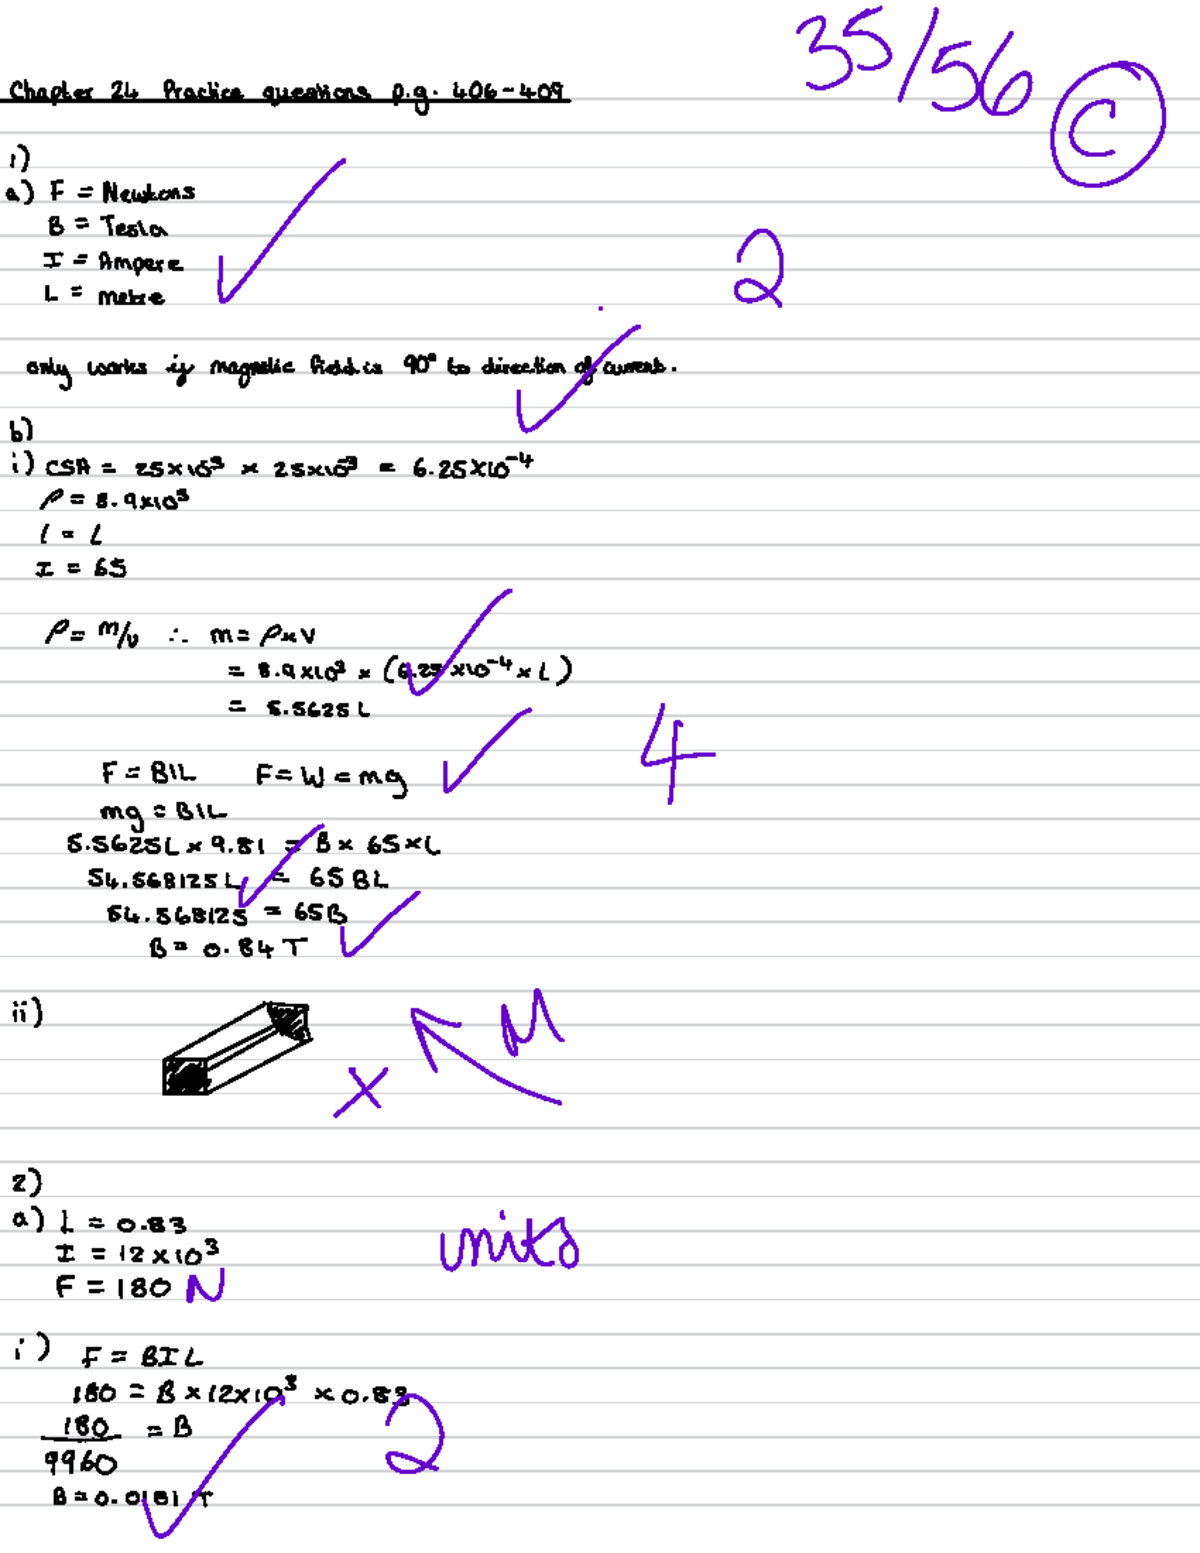 35/56 C
Chapter 24 Practice questions p.g. 406-409
1)
a) F = Newtons
B = Tesla
I = Ampere
L = metre
2
only works if magnetic field is 90° to direction of current.
b)
i) CSA = 25×10⁻³ × 25×10⁻³ = 6.25×10⁻⁴
ρ = 8.9×10³
l = L
I = 65
ρ = m/v ∴ m = ρ×V
= 8.9×10³ × (6.25×10⁻⁴ × L)
= 5.5625L
4
F = BIL F = W = mg
mg = BIL
5.5625L × 9.81 = B × 65 × L
54.568125L = 65BL
54.568125 = 65B
B = 0.84 T
ii)
M
2)
a) L = 0.83
units
I = 12×10³
F = 180 N
i) F = BIL
180 = B × 12×10³ × 0.83
180 = B
9960
2
B = 0.0181 T